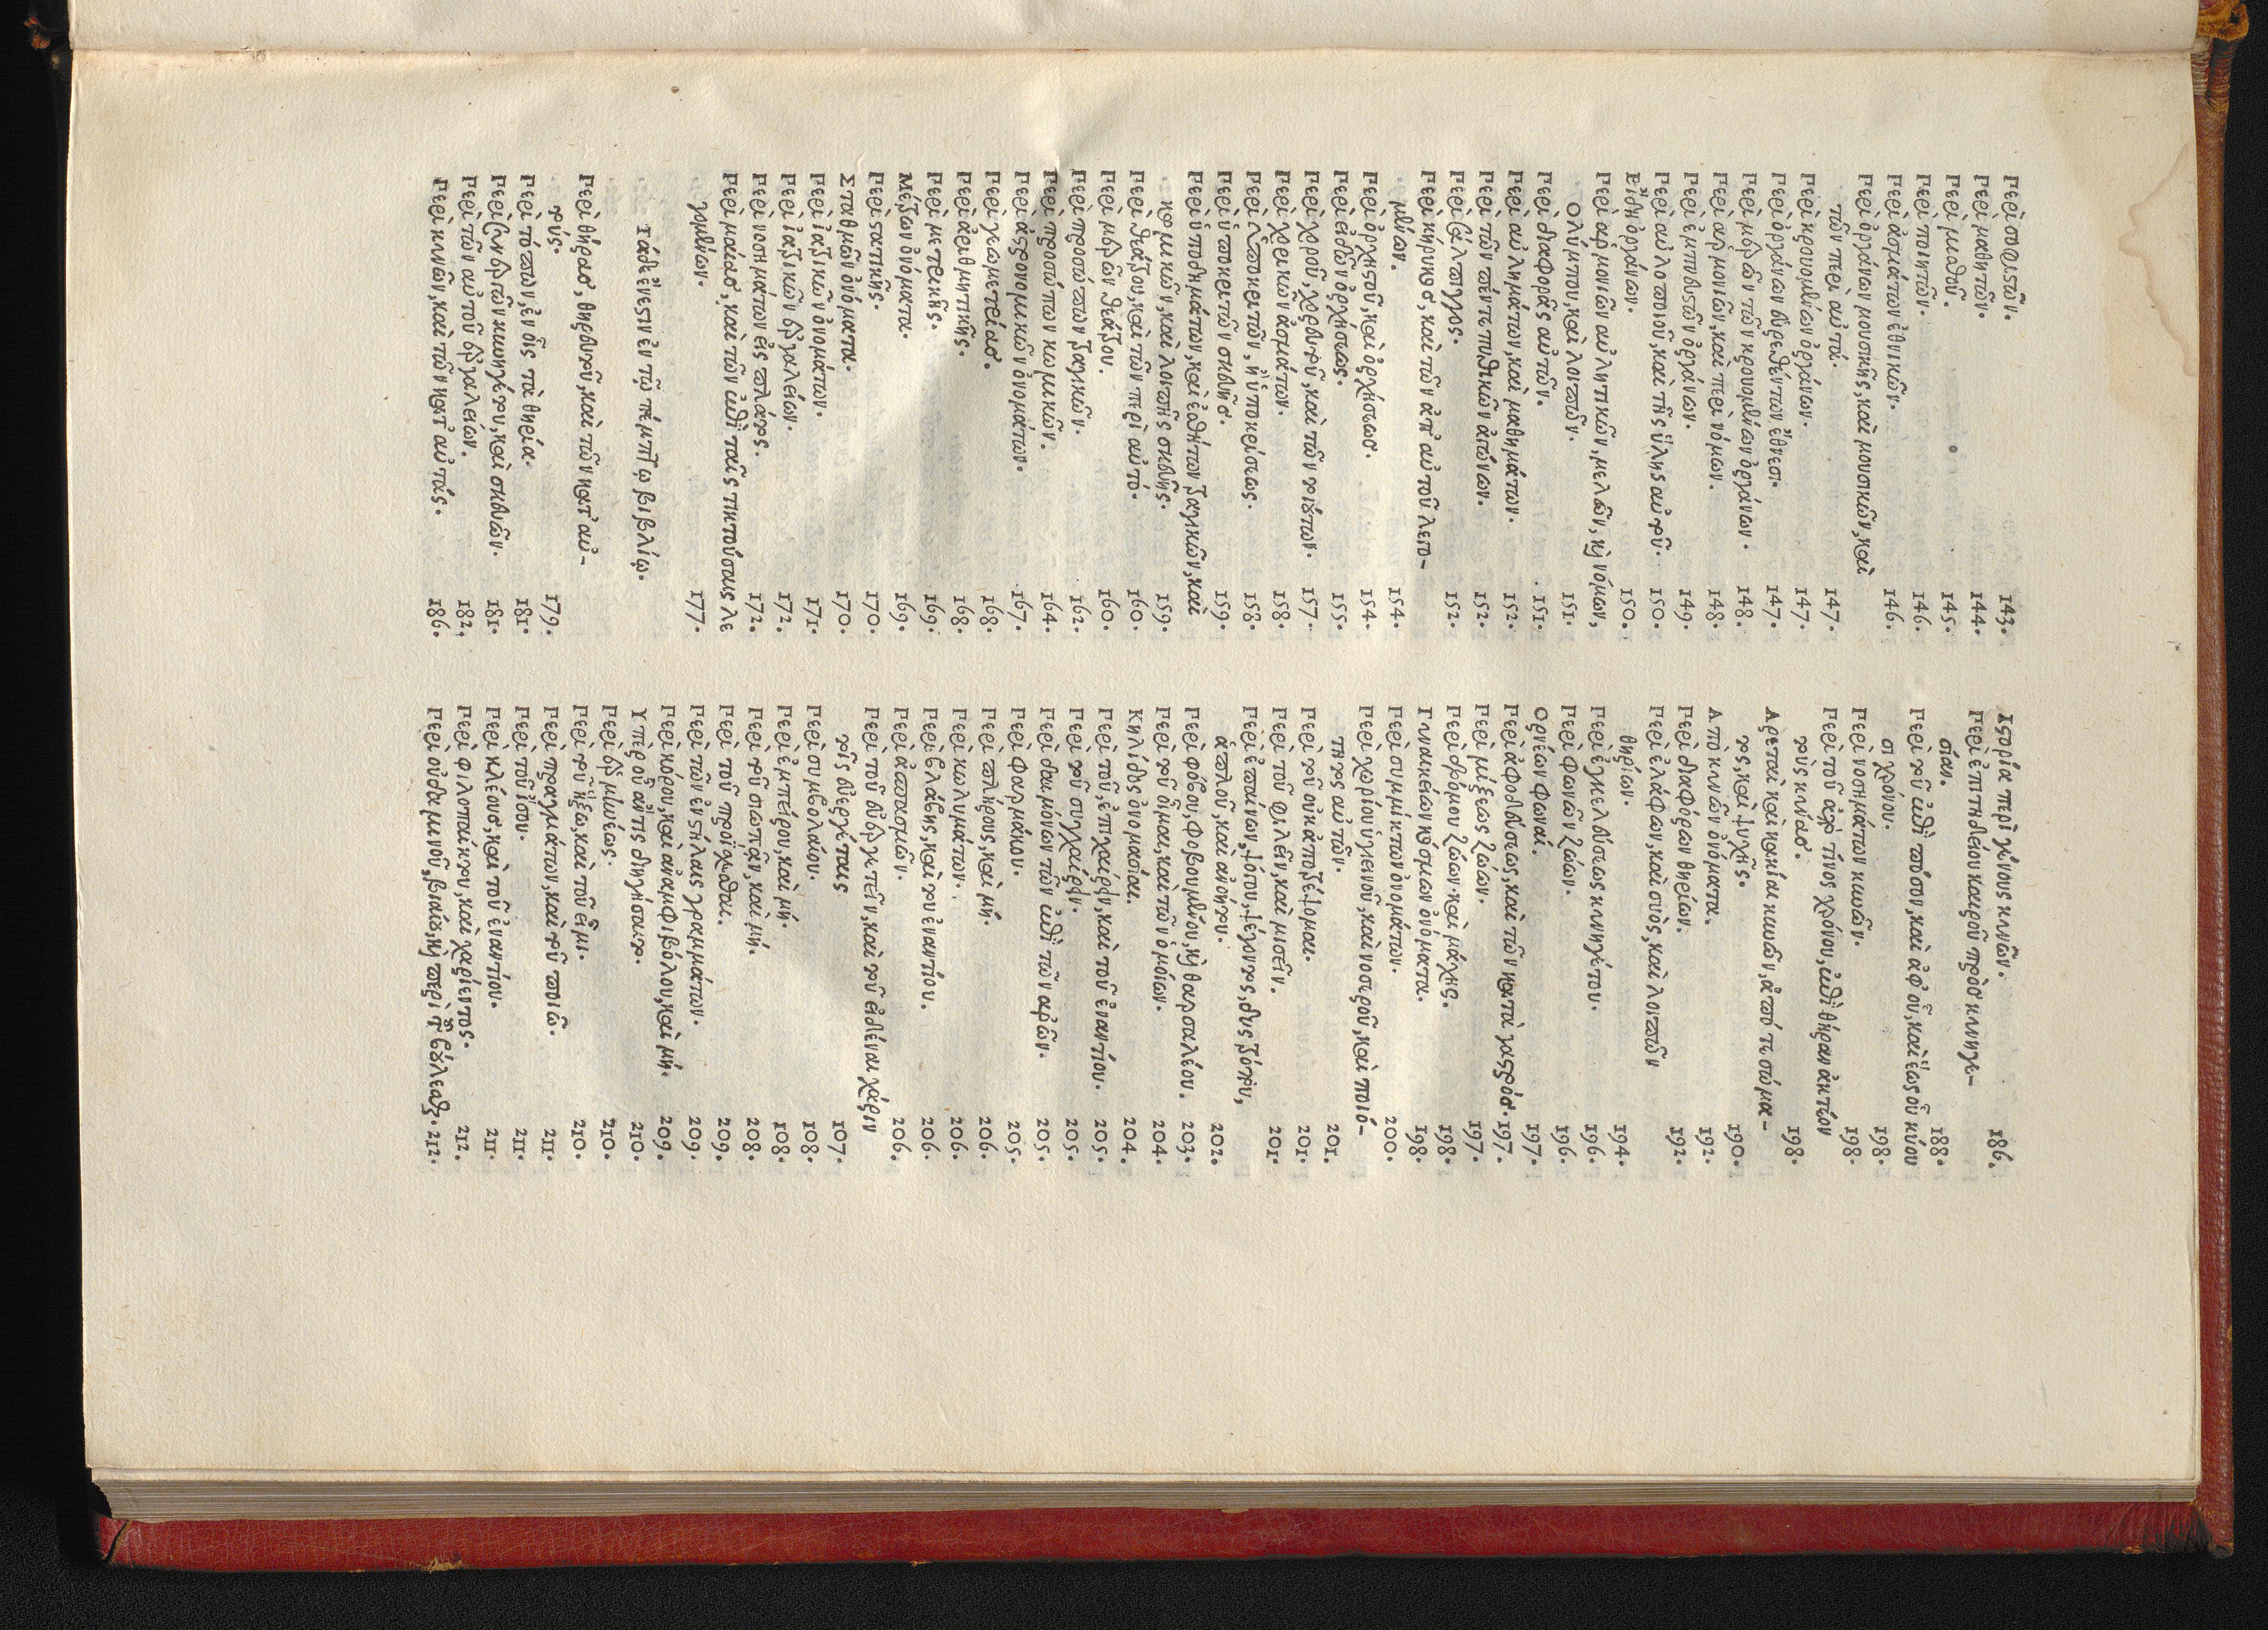 Περὶ σοφιστῶν. 143.
Περὶ μαθητῶν. 144.
Περὶ μισθοῦ. 145.
Περὶ ποιητῶν. 146.
Περὶ ᾀσμάτων ἐθνικῶν. 146.
Περὶ ὀργάνων μουσικῆς, καὶ μουσικῶν, καὶ
τῶν περὶ αὐτά. 147.
Περὶ κρουομένων ὀργάνων. 147.
Περὶ ὀργάνων εὑρεθέντων ἔθνεσι. 147.
Περὶ μερῶν τῶν κρουομένων ὀργάνων. 148.
Περὶ ἁρμονιῶν, καὶ περὶ νόμων. 148.
Περὶ ἐμπνευστῶν ὀργάνων. 149.
Περὶ αὐλοποιοῦ, καὶ τῆς ὕλης αὐτοῦ. 150.
Εἴδη ὀργάνων. 150.
Περὶ ἁρμονιῶν αὐλητικῶν, μελῶν, καὶ νόμων,
Ολύμπου, καὶ λοιπῶν. 151.
Περὶ διαφορᾶς αὐτῶν. 151.
Περὶ αὐλημάτων, καὶ μαθημάτων. 152.
Περὶ τῶν πέντε πυθικῶν ἀγώνων. 152.
Περὶ σάλπιγγος. 152.
Περὶ κήρυκος, καὶ τῶν ἀπ' αὐτοῦ λεγο-
μένων. 154.
Περὶ ὀρχηστοῦ, καὶ ὀρχήσεως. 154.
Περὶ εἰδῶν ὀρχήσεως. 155.
Περὶ χοροῦ, χορευτοῦ, καὶ τῶν τοιούτων. 157.
Περὶ χορικῶν ᾀσμάτων. 158.
Περὶ ὑποκριτῶν, ἢ ὑποκρίσεως. 158.
Περὶ ὑποκριτῶν σκευῆς. 159.
Περὶ ὑποδημάτων, καὶ ἐσθήτων τραγικῶν, καὶ
κωμικῶν, καὶ λοιπῆς σκευῆς. 159.
Περὶ θεάτρου, καὶ τῶν περὶ αὐτό. 160.
Περὶ μερῶν θεάτρου. 160.
Περὶ προσώπων τραγικῶν. 162.
Περὶ προσώπων κωμικῶν. 164.
Περὶ ἀστρονομικῶν ὀνομάτων. 167.
Περὶ γεωμετρίας. 168.
Περὶ ἀριθμητικῆς. 168.
Περὶ μετρικῆς. 169.
Μέτρων ὀνόματα. 169.
Περὶ στατικῆς. 170.
Σταθμῶν ὀνόματα. 170.
Περὶ ἰατρικῶν ὀνομάτων. 171.
Περὶ ἰατρικῶν ἐργαλείων. 172.
Περὶ νοσημάτων εἰς πλάτος. 172.
Περὶ μαίας, καὶ τῶν ἐπὶ ταῖς τικτούσαις λε
γομένων. 177.
Τάδε ἔνεστιν ἐν τῷ πέμπτῳ βιβλίῳ.
Περὶ θήρας, θηρευτοῦ, καὶ τῶν κατ' αὐ-
τούς. 179.
Περὶ τόπων, ἐν οἷς τὰ θηρία. 181.
Περὶ ἐνεργῶν κυνηγέτου, καὶ σκευῶν. 181.
Περὶ τῶν αὐτοῦ ἐργαλείων. 182.
Περὶ κυνῶν, καὶ τῶν κατ' αὐτάς. 186.
Ιστορία περὶ γένους κυνῶν. 186.
Περὶ ἐπιτηδείου καιροῦ πρὸς κυνηγε-
σίαν. 188.
Περὶ τοῦ ἐπὶ πόσον, καὶ ἀφ' οὗ, καὶ ἕως οὗ κύου
σι χρόνου. 198.
Περὶ νοσημάτων κυνῶν. 198.
Περὶ τοῦ ἀπό τίνος χρόνου, ἐπὶ θήραν ἀκτέον
τοὺς κύνας. 198.
Αρεταὶ καὶ κακίαι κυνῶν, ἀπό τε σώμα-
τος, καὶ ψυχῆς. 190.
Απὸ κυνῶν ὀνόματα. 192.
Περὶ διαφόρων θηρίων. 192.
Περὶ ἐλάφων, καὶ συὸς, καὶ λοιπῶν
θηρίων. 194.
Περὶ ἐγκελεύσεως κυνηγέτου. 196.
Περὶ φωνῶν ζώων. 196.
Ορνέων φωναί. 197.
Περὶ ἀφοδεύσεως, καὶ τῶν κατὰ γαστρός. 197.
Περὶ μίξεως ζώων. 197.
Περὶ δρόμου ζώων. καὶ μάχης. 198.
Γυναικείων κόσμων ὀνόματα. 198.
Περὶ συμμίκτων ὀνομάτων. 200.
Περὶ χωρίου ὑγιεινοῦ, καὶ νοσεροῦ, καὶ ποιό-
τητος αὐτῶν. 201.
Περὶ τοῦ οὐκ ἀποτρέψομαι. 201.
Περὶ τοῦ φιλεῖν, καὶ μισεῖν. 201.
Περὶ ἐπαίνων, ψόγου, ψέγοντος, δυστρόπου,
ἁπλοῦ, καὶ ἀνοήτου. 202.
Περὶ φόβου, φοβουμένου, καὶ θαρσαλέου. 203.
Περὶ τοῦ οἶμαι, καὶ τῶν ὁμοίων. 204.
Κηλῖδος ὀνομασίαι. 204.
Περὶ τοῦ, ἐπιχαίρειν, καὶ τοῦ ἐναντίου. 205.
Περὶ τοῦ συγχαίρειν. 205.
Περὶ δαιμόνων τῶν ἐπὶ τῶν ἀρῶν. 205.
Περὶ φαρμάκου. 205.
Περὶ πλήθους, καὶ μή. 206.
Περὶ κωλυμάτων. 206.
Περὶ βλάβης, καὶ τοῦ ἐναντίου. 206.
Περὶ ἀσπασμῶν. 206.
Περὶ τοῦ εὐεργετεῖν, καὶ τοῦ εἰδέναι χάριν
τοῖς εὐεργέταις 107.
Περὶ συμβολαίου. 108.
Περὶ ἐμπείρου, καὶ μή. 108.
Περὶ τοῦ σιωπᾶν, καὶ μή. 208.
Περὶ τοῦ προῖκασθαι. 209.
Περὶ τῶν ἐν στήλαις γραμμάτων. 209.
Περὶ κόρου, καὶ ἀναμφιβόλου, καὶ μή. 209.
Υπὲρ οὗ ἄν τις διηγήσαιτο. 210.
Περὶ ἑρμηνέως. 210.
Περὶ τοῦ ἥξω, καὶ τοῦ εἶμι. 210.
Περὶ πραγμάτων, καὶ τοῦ ποιῶ. 211.
Περὶ τοῦ ἴσου. 211.
Περὶ κλέους, καὶ τοῦ ἐναντίου. 211.
Περὶ φιλοπαίκτου, καὶ χαρίεντος. 212.
Περὶ οὐδαμινοῦ, βιαίου, καὶ περὶ τοῦ βούλεσθαι. 212.